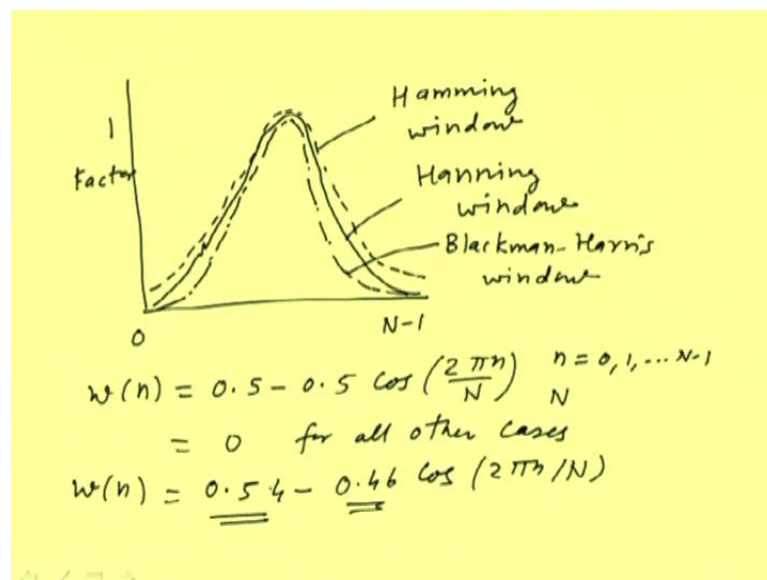 Hamming
window
1
Factor
Hanning
window
Blackman-Harris
window
0
N-1
w(n) = 0.5 - 0.5 cos (2πn/N) n = 0, 1, ... N-1
N
= 0 for all other cases
w(n) = 0.54 - 0.46 cos (2πn/N)